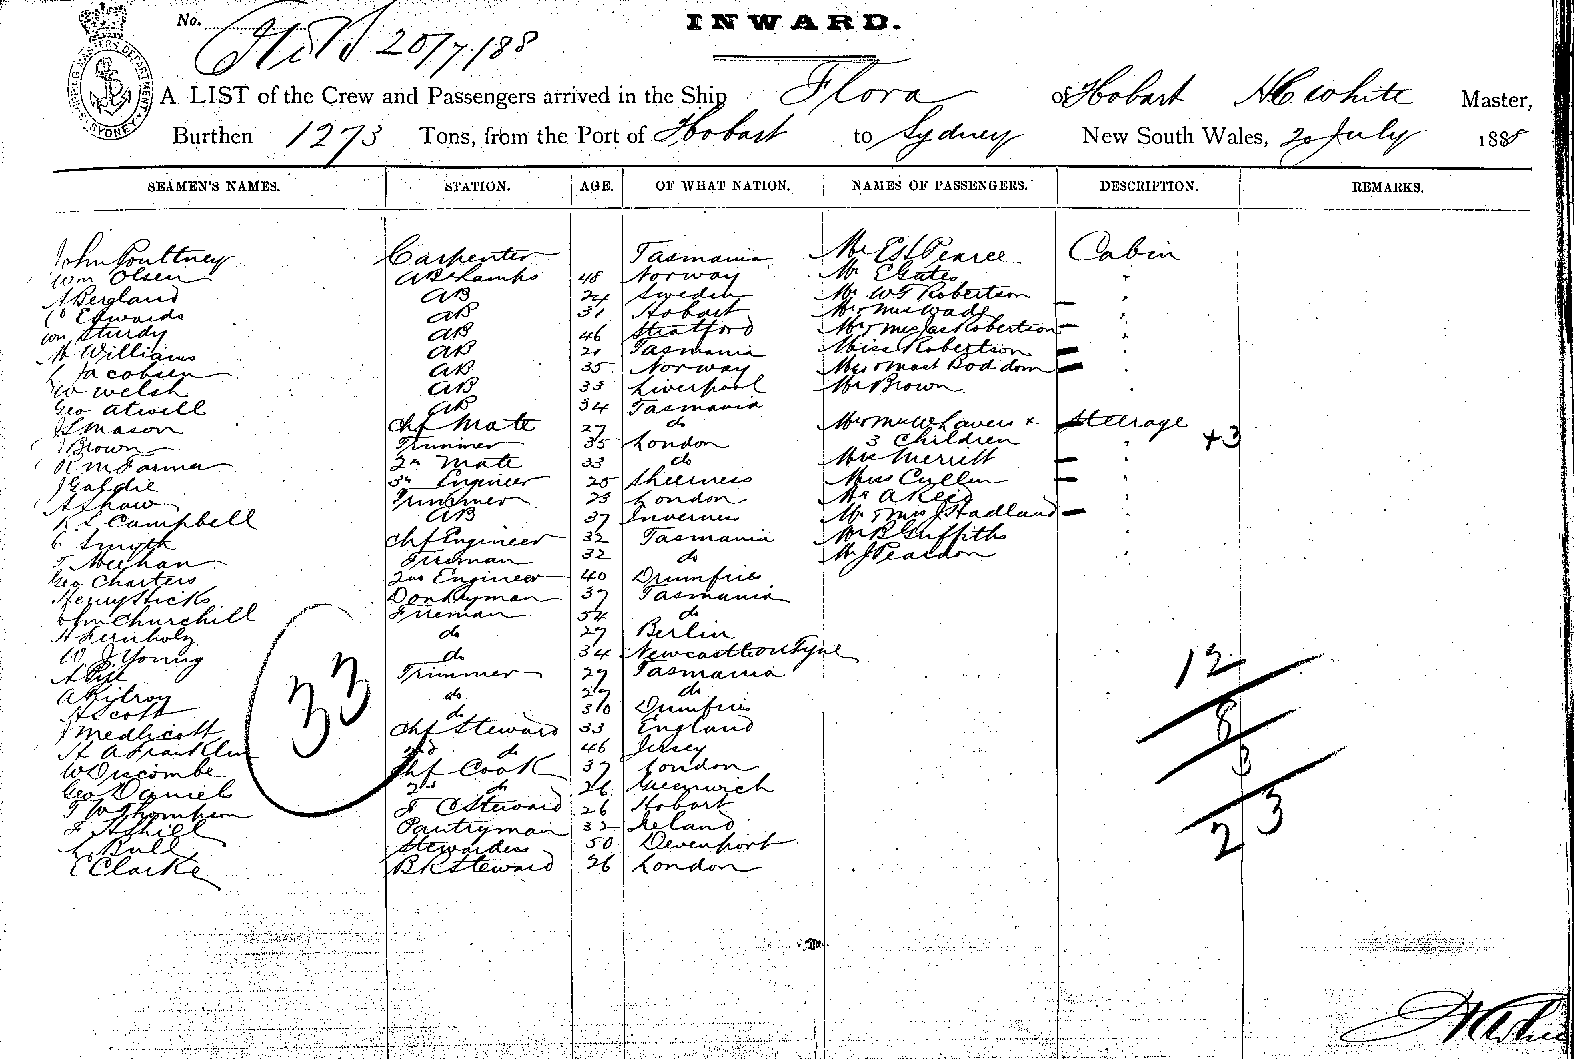 No.
20/7/88
INWARD.
A LIST of the Crew and Passengers arrived in the Ship Flora of Hobart HC White Master,
Burthen 1273 Tons, from the Port of Hobart to Sydney New South Wales, 20 July 1888
SEAMEN'S NAMES. STATION. AGE. OF WHAT NATION. NAMES OF PASSENGERS. DESCRIPTION. REMARKS.
John Poultney Carpenter Tasmania Mr Pearce Cabin
Wm Olsen AB & Lamps 48 Norway Mr Gates "
Bergland AB 24 Sweden Mr WT Robertson "
Edwards AB 31 Hobart Mr & Mrs Wade "
Wm Sturdy AB 46 Stratford Mr & Mrs Jas Robertson "
Williams AB 21 Tasmania Miss Robertson "
Jacobsen AB 35 Norway "
W Welsh AB 33 Liverpool Mr Brown "
Geo Atwill AB 34 Tasmania
Mason Chf Mate 27 do Mr & Mrs W Lavers & Steerage
Brown Trimmer 35 London 3 Children " +3
2nd Mate 33 do Mrs Merrett "
Engineer 25 Sheerness Miss Cullen "
A Shaw Trimmer 23 London Mr A Reed "
Campbell AB 37 Inverness Mr & Mrs J Hadland "
Smyth Chf Engineer 32 Tasmania Mr R Griffiths "
T Meehan Fireman 32 do Mr J Peardon "
Geo Charters 2nd Engineer 40 Dumfries
Henry Hicks Donkeyman 37 Tasmania
John Churchill Fireman 54 do
do 27 Berlin
W J Young do 34 Newcastle on Tyne
Trimmer 27 Tasmania
A Kilroy do 27 do
A Scott do 30 Dumfries
J Medlicott Chf Steward 33 England
H A Franklin 2nd do 46 Jersey
W Duscombe Chf Cook 37 London
Geo Daniels 2nd do 26 Greenwich
T W Thompson F C Steward 26 Hobart
F Ashill Pantryman 32 Ireland
Bull Stewardess 50 Devenport
E Clarke BR Steward 26 London
33
12
8
3
23